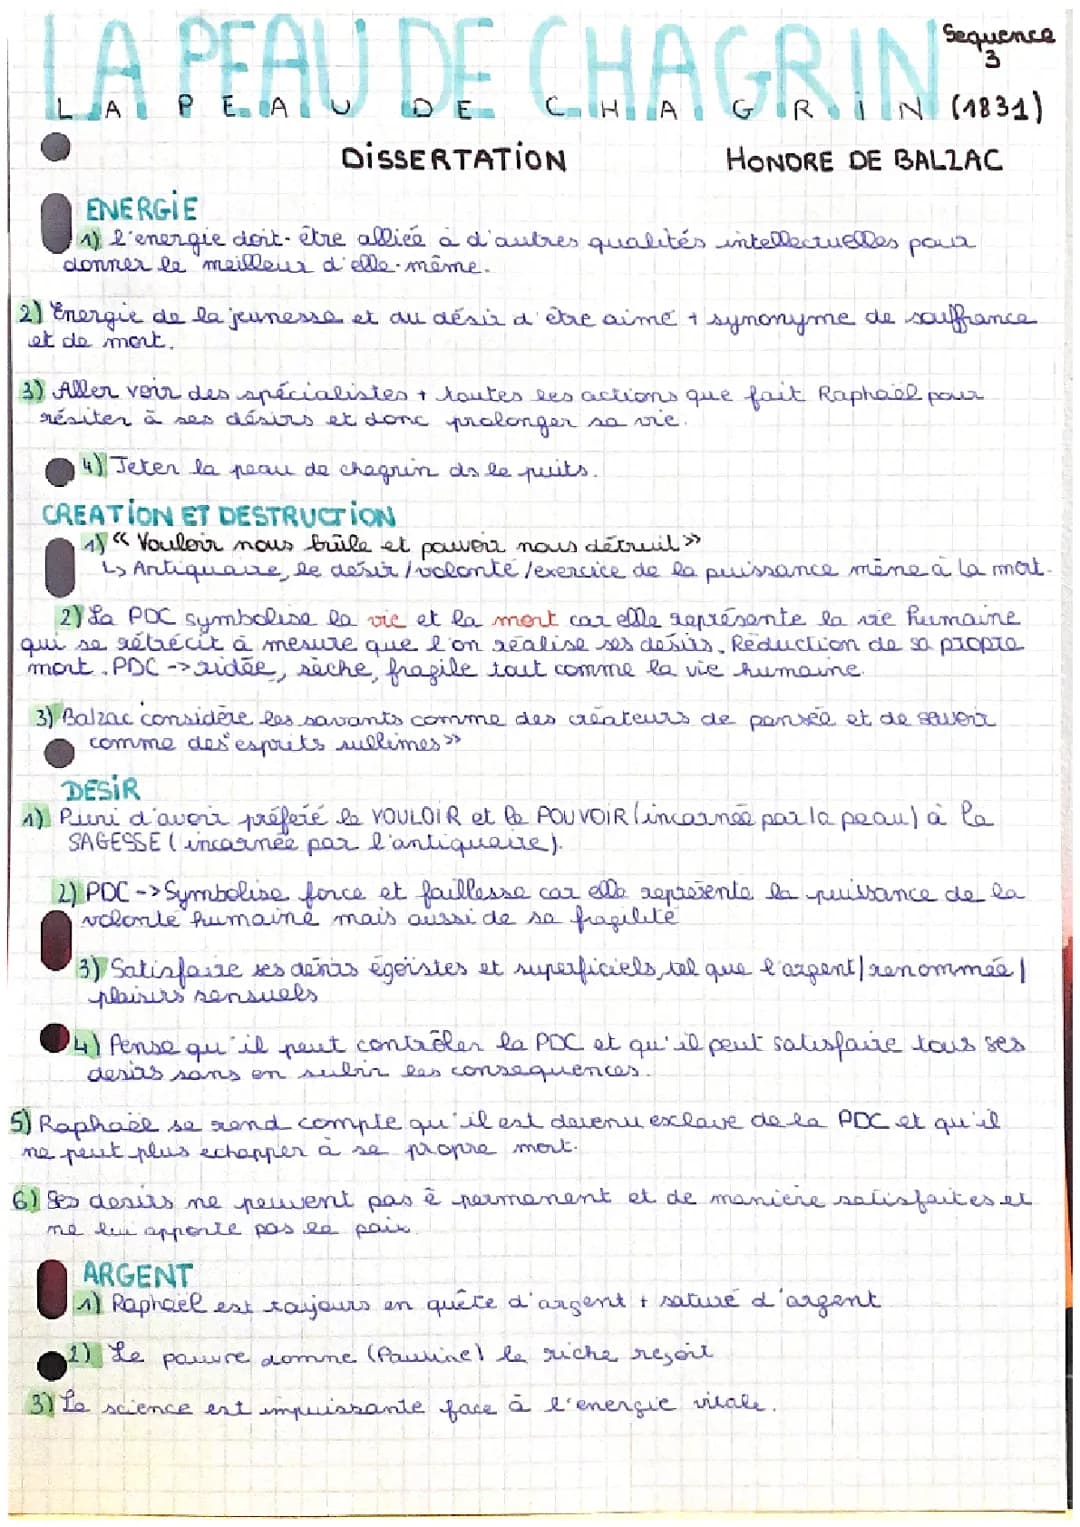 LA PEAU DE CHAGRIN
Sequence
3
LA PEAU DE CHAGRIN (1831)
DISSERTATION
HONORE DE BALZAC
ENERGIE
1) l'energie doit-être alliée à d'autres qualités intellectuelles pour
donner le meilleur d'elle-même.
2) Energie de la jeunesse et du désir d'être aimé + synonyme de souffrance
et de mort.
3) Aller voir des spécialistes + toutes les actions que fait Raphaël pour
résiter à ses désirs et donc prolonger sa vie.
4) Jeter la peau de chagrin ds le puits.
CREATION ET DESTRUCTION
1) « Vouloir nous brûle et pouvoir nous détruit »
↳ Antiquaire, le désir/volonté/exercice de la puissance mène à la mort.
2) La PDC symbolise la vie et la mort car elle représente la vie humaine
qui se rétrécit à mesure que l'on réalise ses désirs. Réduction de sa propre
mort. PDC -> ridée, sèche, fragile tout comme la vie humaine.
3) Balzac considère les savants comme des créateurs de pensée et de savoir
comme des "esprits sublimes »
DESIR
1) Puni d'avoir préféré le VOULOIR et le POUVOIR (incarnée par la peau) à la
SAGESSE (incarnée par l'antiquaire).
2) PDC -> Symbolise force et faiblesse car elle représente la puissance de la
volonté humaine mais aussi de sa fragilité
3) Satisfaire ses désirs égoïstes et superficiels, tel que l'argent/renommée/
plaisirs sensuels
4) Pense qu'il peut contrôler la PDC et qu'il peut satisfaire tous ses
desirs sans en subir les consequences.
5) Raphaël se rend compte qu'il est devenu exclave de la PDC et qu'il
ne peut plus echapper à sa propre mort.
6) Ses desirs ne peuvent pas ê permanent et de manière satisfaites et
ne lui apporte pas la paix.
ARGENT
1) Raphaël est toujours en quête d'argent + saturé d'argent
2) Le pauvre donne (Pauline) le riche reçoit
3) La science est impuissante face à l'energie vitale.